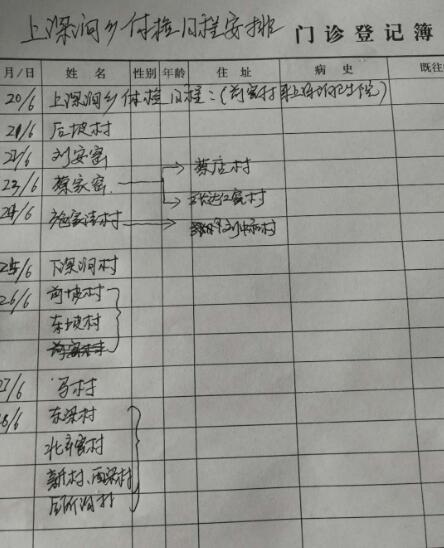 上深涧乡体检日程安排 门诊登记簿
月/日 姓名 性别 年龄 住址 病史 既往
20/6 上深涧乡体检日程:(前窑村来上深涧卫生院)
21/6 后坡村
22/6 刘安窑
23/6 蔡家窑 蔡庄村
24/6
25/6 下深涧村
26/6 前坡村
东坡村
27/6 马村
28/6 东梁村
北辛窑村
新村、西梁村